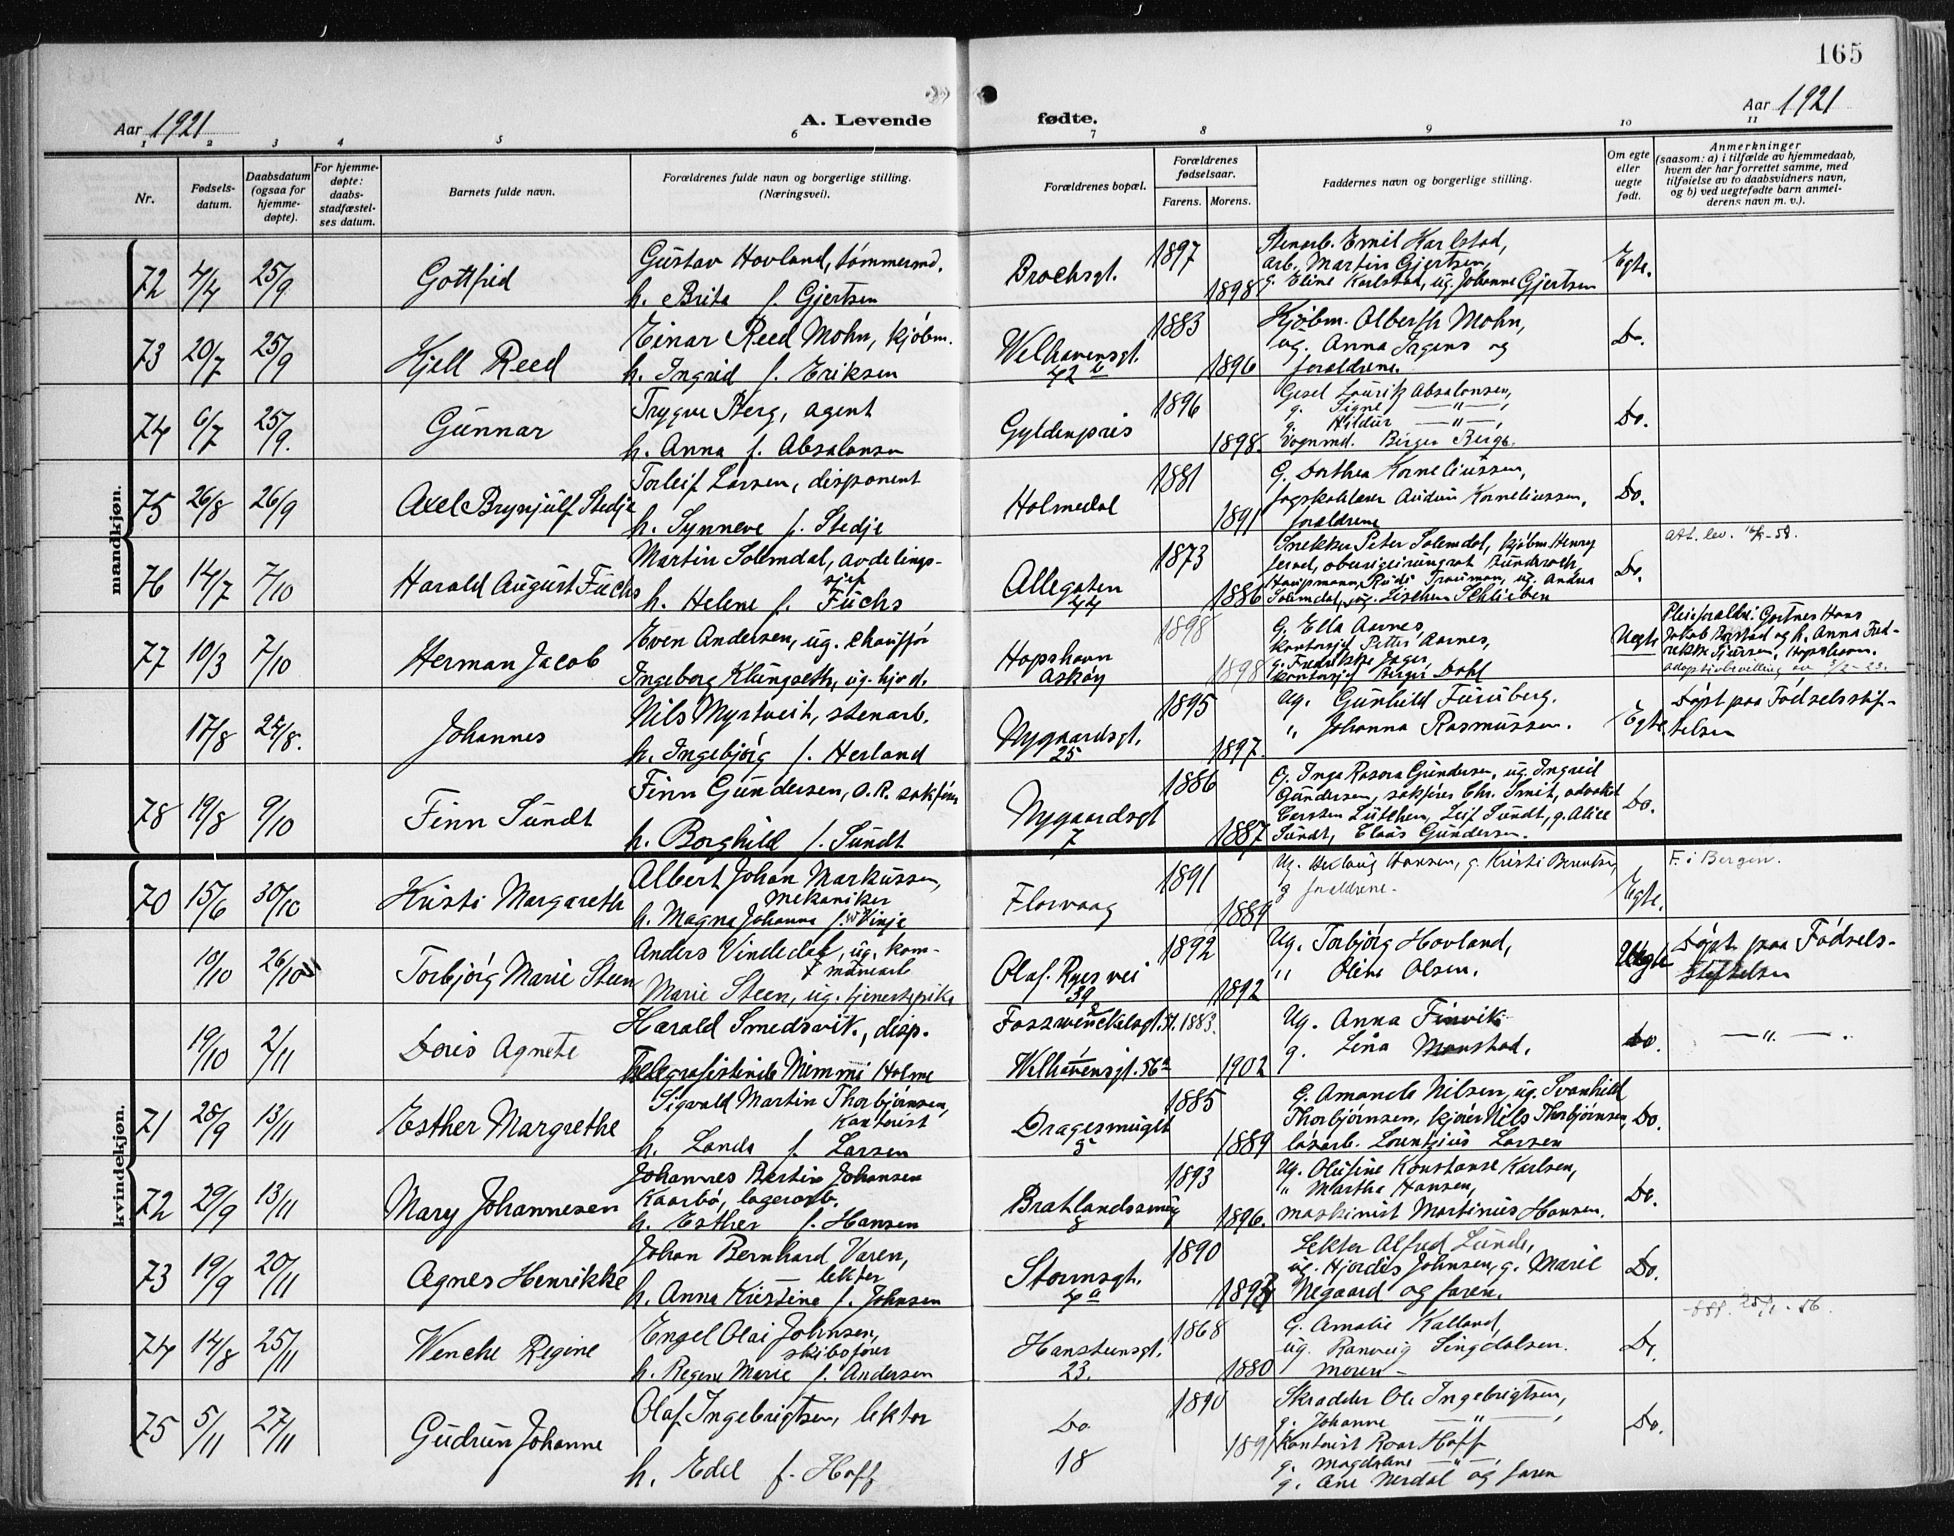 165
Aar 1921
A. Levende
fødte.
Aar 1921
1 2 3 4 5 6 7 8 9 10 11
Nr.
Fødsels-
datum.
Daabsdatum
(ogsaa for
hjemme-
døpte).
For hjemme-
døpte:
daabs-
stadfæstel-
ses datum.
Barnets fulde navn.
Forældrenes fulde navn og borgerlige stilling.
(Næringsvei).
Forældrenes bopæl.
Forældrenes
fødselsaar.
Farens. Morens.
Faddernes navn og borgerlige stilling.
Om egte
eller
uegte
født.
Anmerkninger
(saasom: a) i tilfælde av hjemmedaab,
hvem der har forrettet samme, med
tilføielse av to daabsvidners navn,
og b) ved uegtefødte barn anmel-
derens navn m. v.).
mandkjøn.
72 4/4 25/9 Gottfred
Gustav Hovland, tømmermd.
h. Brita f. Gjertsen
Brochsgt.
1897
1898
Stenarb. Emil Karlstad,
arb. Martin Gjertsen,
g. Eline Karlstad, ug. Johanne Gjertsen
Egte.
73 20/7 25/9 Kjell Reed
Einar Reed Mohn, kjøbm.
h. Ingrid f. Eriksen
Welhavensgt.
42 b
1883
1896
Kjøbm. Albert Mohn,
ug. Anna Irgens og
forældrene.
Do.
74 6/7 25/9. Gunnar
Trygve Berg, agent
h. Anna f. Absalonsen
Gyldenpris
1896
1898.
Lauritz Absalonsen,
g. Signe —"—,
g. Hildur —"—,
Vognmd. Birger Berge.
Do.
75 26/8 26/9 Axel Brynjulf Stedje
Torleif Larsen, disponent
h. Synneve f. Stedje
Holmedal
1881
1891
G. Dorthea Korneliussen,
fagskolelærer Audun Korneliussen,
forældrene
Do.
76 14/7 7/10 Harald August Fuchs
Martin Solemdal, avdelings-
sjef
h. Helene f. Fuchs
Allegaten
44
1873
1886
Snekker Peter Solemdal, kjøbm. Henry
Solemdal, ug. Lischen Schlieben
Do.
att. lev. 16/8-58.
77 10/3 7/10 Herman Jacob
Even Andersen, ug. chauffør
Ingeborg Klungseth, ug. hjvd.
Hopshavn
Askøy
1898
1898
G. Ella Aarnes,
kontorsj. Peter Aarnes,
g. Fredrikke Jæger
kontorsjef Birger Dahl
Uegte
Pleieforældre: Gartner Hans
Jakob og h. Anna Fred-
rikke Sjursen, Hopshavn.
adoptivbevilling av 3/2-23.
17/8 24/8. Johannes
Nils Myrtveit, stenarb.
h. Ingebjørg f. Herland
Nygaardsgt.
25
1895
1897.
Ug. Gunhild Furuberg.
" Johanna Rasmussen.
Egte
Døpt paa Fødselsstif-
telsen
78 19/8 9/10 Finn Sundt
Finn Gundersen, O.R. sakfører
h. Borghild f. Sundt
Nygaardsgt
7
1886
1887
G. Inga Rosora Gundersen, ug. Ingrid
Gundersen, sakfører Chr. Smit, advokat
Carsten Lütchen, Leif Sundt, g. Alice
Sundt, Claus Gundersen.
Do.
kvindekjøn.
70 15/6 30/10 Kristi Margareth
Albert Johan Markussen,
mekaniker
h. Magna Johanna f. Vinje
Florvaag
1891
1889
Ug. Hansen, g. Kristi Berentsen,
g forældrene.
Egte.
F. i Bergen.
10/10 26/10 Torbjørg Marie Steen
Anders Vindedal, ug. kom-
munearb
Marie Steen, ug. tjenestepike
Olaf Ryes vei
39
1892
1892
Ug. Torbjørg Hovland,
" Oline Olsen.
Uegte
Døpt paa Fødsels-
stiftelsen
19/10 2/11 Doris Agnete
Harald Smedsvik, disp.
Telegrafistinde Mimmi Holme
Fosswenckelsgt. 51. 1883.
Welhavensgt. 56a 1902
Ug. Anna Finvik
g. Lina Monstad.
Do.
—"—.
71 28/9 13/11 Esther Margrethe
Sigvald Martin Thorbjørnsen,
Kontorist
h. Landa f. Larsen
Dragesmuget
9
1885
1889
G. Amanda Nilsen, ug. Svanhild
Thorbjørnsen, kjører Nils Thorbjørnsen,
løsarb. Lorentzius Larsen
Do.
72 29/9 13/11 Mary Johannesen
Johannes Bertin Johansen
Kaarbø, lagerarb.
h. Esther f. Hansen
Bratlandssmug
8
1893
1896.
Ug. Olufine Konstanse Karlsen,
" Martha Hansen,
maskinist Martinius Hansen.
Do.
73 19/9 20/11 Agnes Henrikke
Johan Bernhard Varen,
lektor
h. Anna Kristine f. Johnsen
Stormsgt.
4a
1890
Lektor Alfred Lunde,
ug. Hjordis Johnsen, g. Marie
Negaard og faren.
Do.
74 14/8 25/11 Wenche Regine
Engel Olai Johnsen,
skibsfører
h. Regene Marie f. Andersen
Hansteensgt.
23.
1868
1880
G. Amalie Kalland,
ug. Ranveig Singdalsen.
moren
Do.
75 5/11 27/11 Gudrun Johanne
Olaf Ingebrigtsen, lektor
h. Edel f. Hoff
Do
18
1890
1891
Skrædder Ole Ingebrigtsen,
g. Johanne —"—,
kontorist Roar Hoff
g. Magdalene —"—,
g. Ane Nerdal og faren
Do.